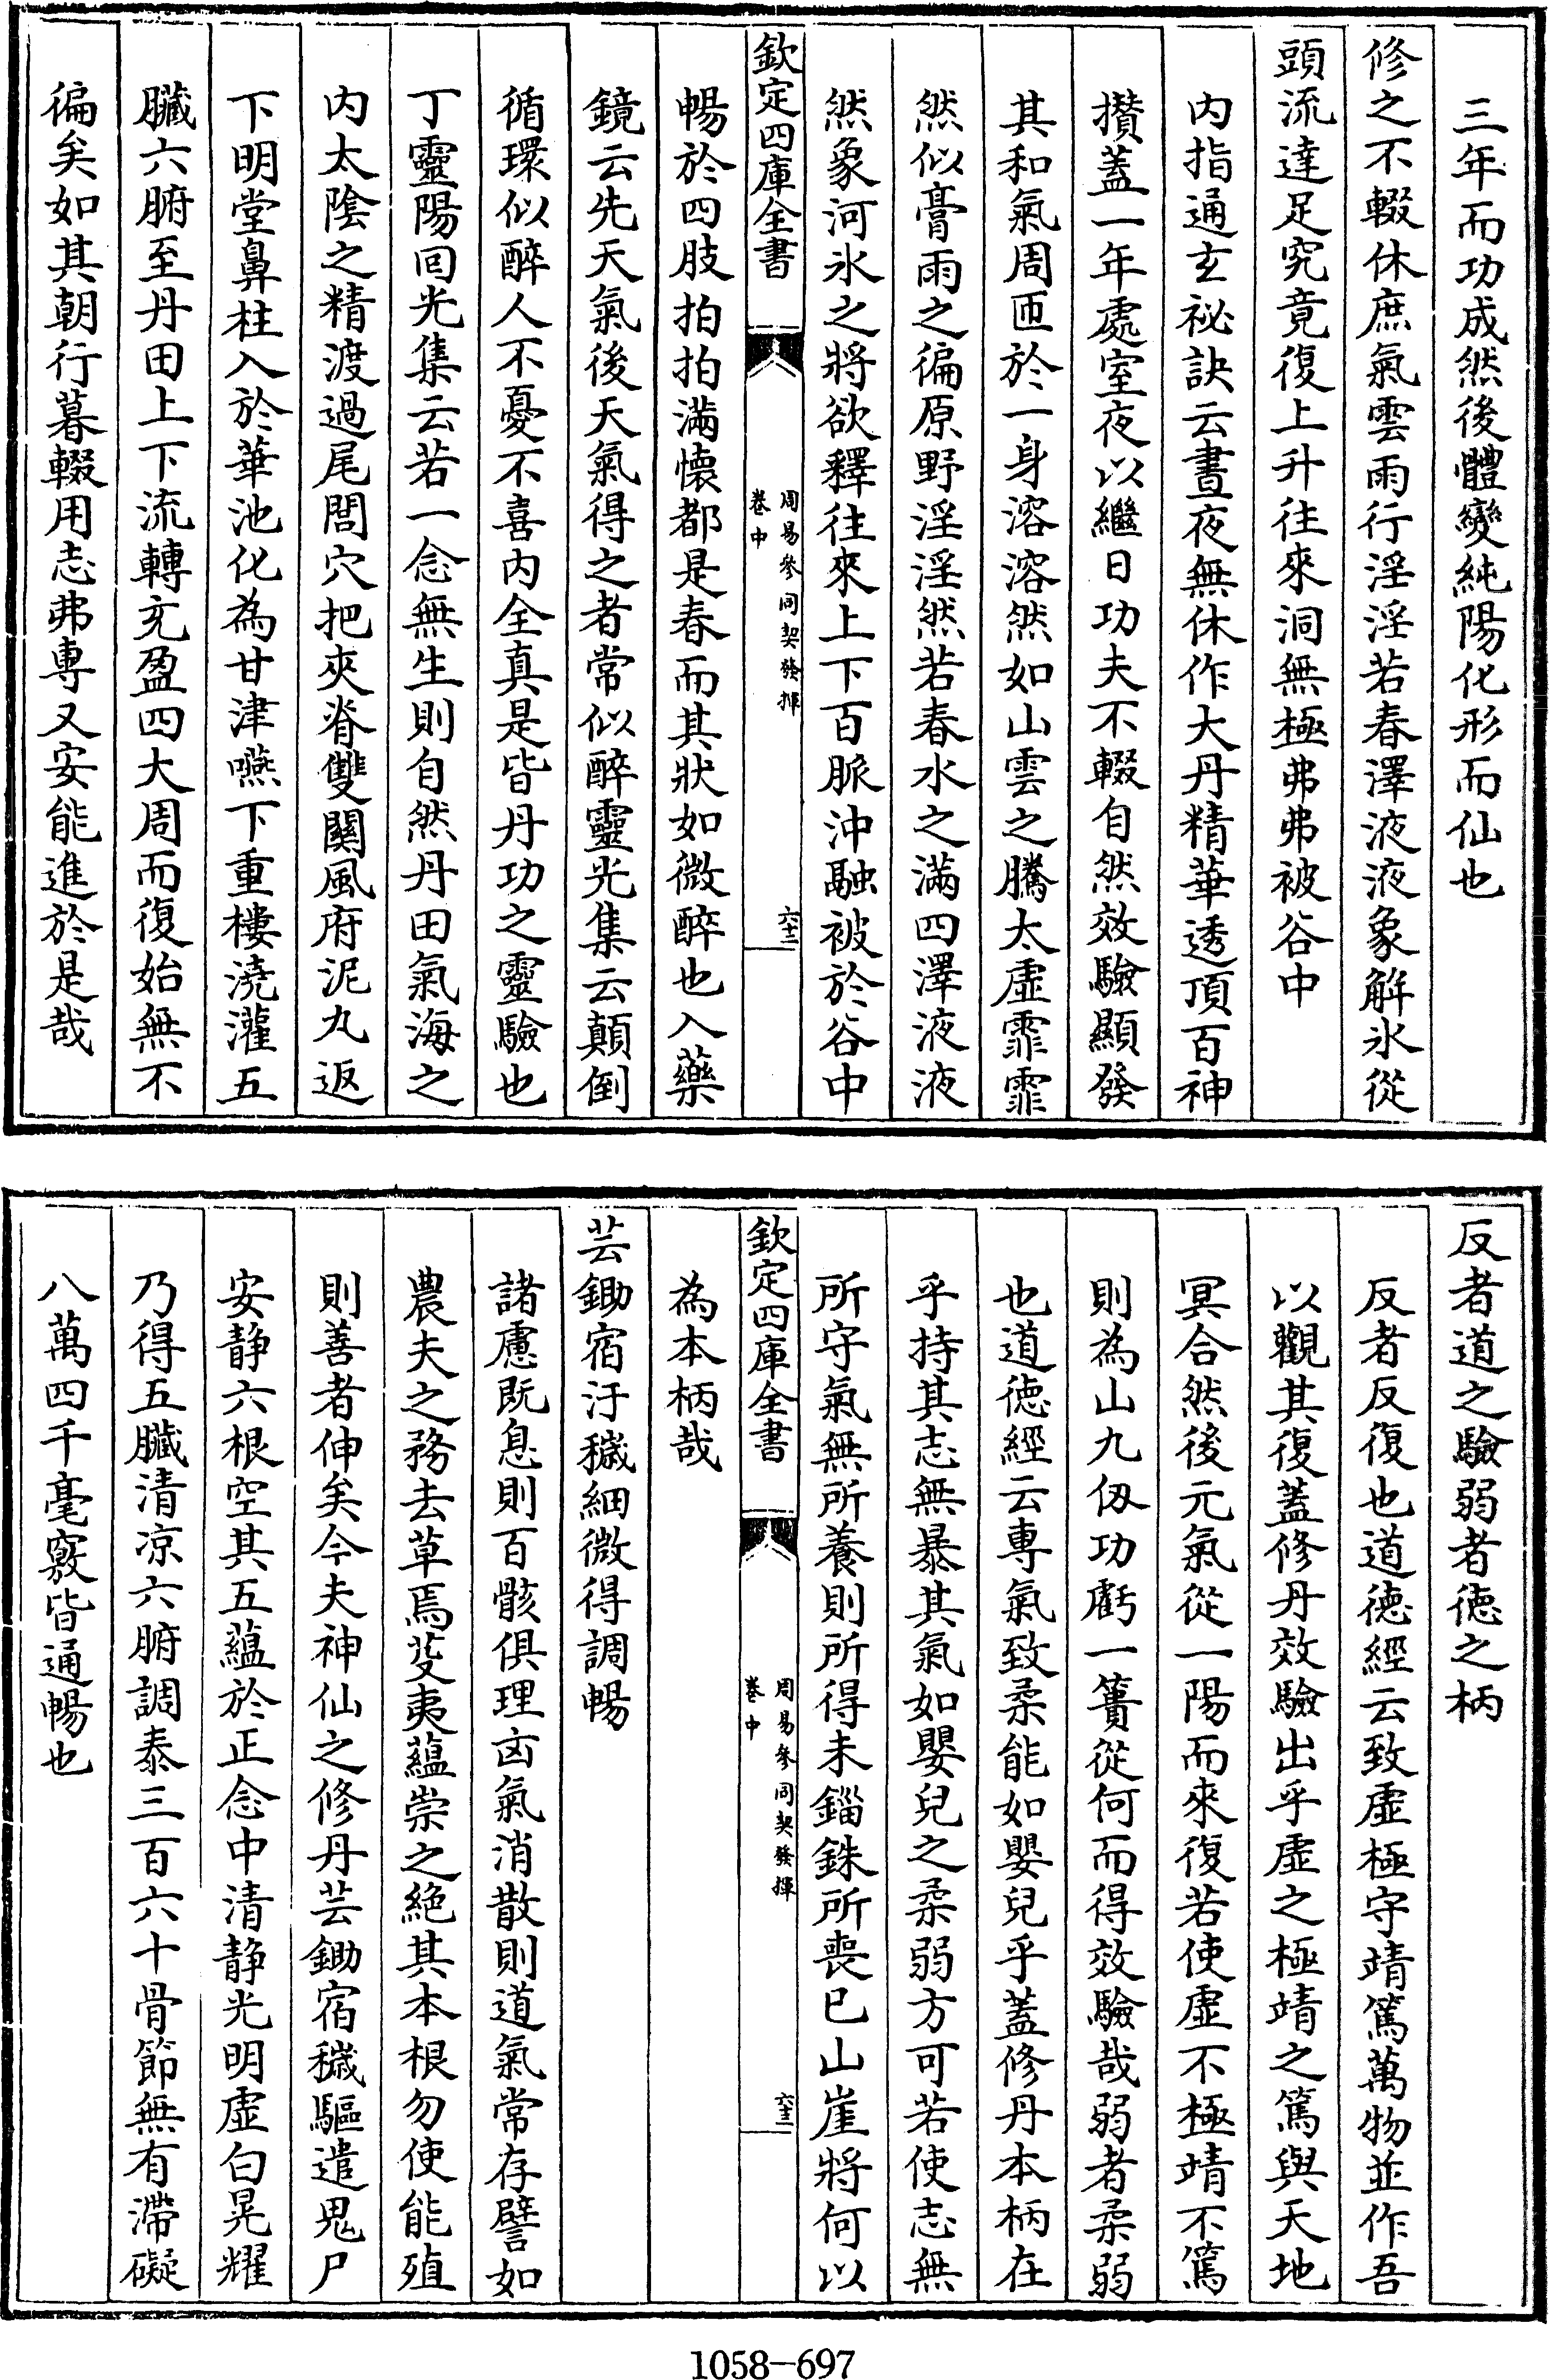 三年而功成然後體變純陽化形而仙也
修之不輟休庶氣雲雨行淫淫若春澤液液象解氷從
頭流達足究竟復上升往來洞無極弗弗被谷中
内指通玄祕訣云晝夜無休作大丹精華透頂百神
攅蓋一年處室夜以繼日功夫不輟自然效驗顯發
其和氣周匝於一身溶溶然如山雲之騰太虛霏霏
然似膏雨之徧原野淫淫然若春水之滿四澤液液
然象河氷之將欲釋往來上下百脈沖融被於谷中
欽定四庫全書
周易參同契發揮
卷中
六十二
暢於四肢拍拍滿懷都是春而其狀如微醉也入藥
鏡云先天氣後天氣得之者常似醉靈光集云顛倒
循環似醉人不憂不喜内全真是皆丹功之靈驗也
丁靈陽回光集云若一念無生則自然丹田氣海之
内太陰之精渡過尾閭穴把夾脊雙關風府泥丸返
下明堂鼻柱入於華池化為甘津嚥下重樓澆灌五
臟六腑至丹田上下流轉充盈四大周而復始無不
徧矣如其朝行暮輟用志弗専又安能進於是哉
反者道之驗弱者徳之柄
反者反復也道徳經云致虛極守靖篤萬物並作吾
以觀其復蓋修丹效驗出乎虛之極靖之篤與天地
冥合然後元氣從一陽而來復若使虛不極靖不篤
則為山九仭功虧一簣從何而得效驗哉弱者柔弱
也道徳經云専氣致柔能如嬰兒乎蓋修丹本柄在
乎持其志無暴其氣如嬰兒之柔弱方可若使志無
所守氣無所養則所得未錙銖所喪已山崖將何以
欽定四庫全書
周易參同契發揮
卷中
六十三
為本柄哉
芸鋤宿汙穢細微得調暢
諸慮既息則百骸俱理㐫氣消散則道氣常存譬如
農夫之務去草焉芟夷蘊崇之絶其本根勿使能殖
則善者伸矣今夫神仙之修丹芸鋤宿穢驅遣鬼尸
安静六根空其五蘊於正念中清静光明虛白晃耀
乃得五臟清凉六腑調泰三百六十骨節無有滯礙
八萬四千毫竅皆通暢也
1058-697